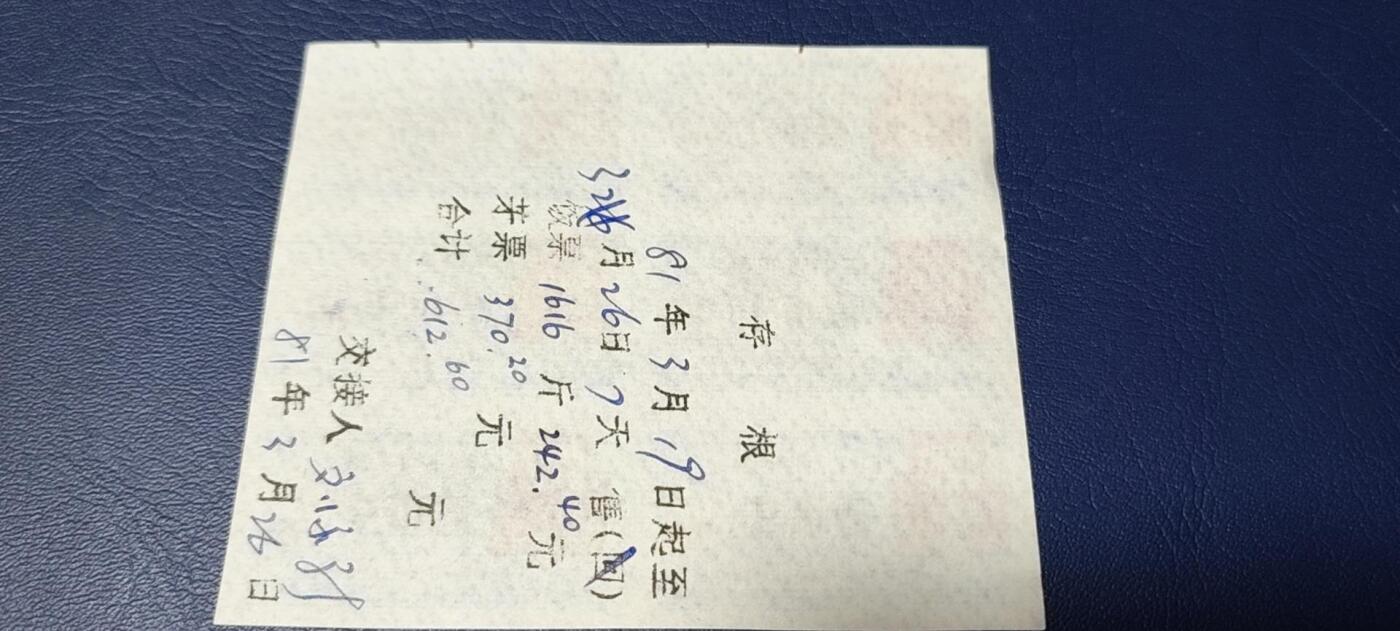 存 根
81年3月19日起至
3月26日7天 售(回)
饭票 1616 斤 242.40元
芽票 370.20 元
合计 612.60 元
交接人
81年3月26日